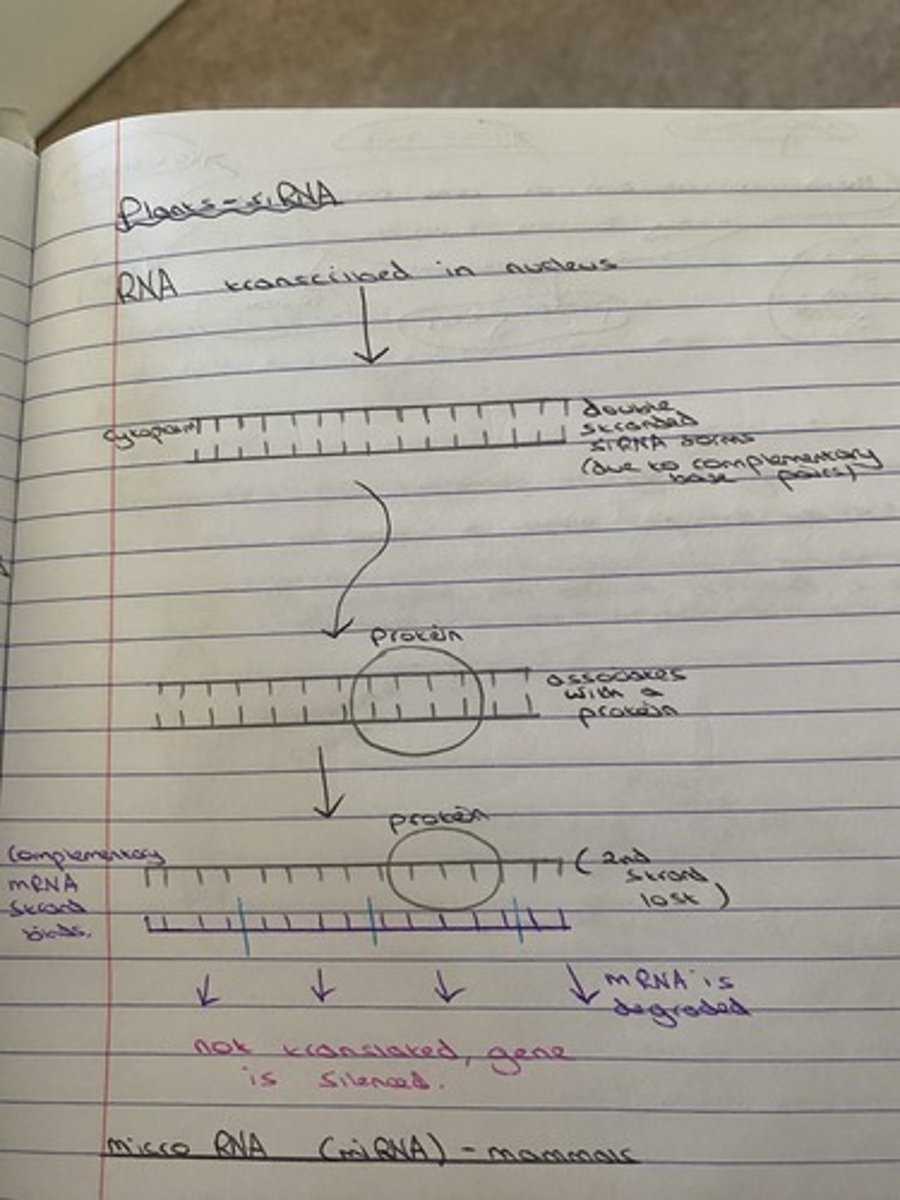 Plants - siRNA
RNA transcribed in nucleus
cytoplasm
double
stranded
siRNA forms
(due to complementary
base pairs)
protein
associates
with a
protein
protein
Complementary
mRNA
strand
binds.
( 2nd
strand
lost )
mRNA is
degraded
not translated, gene
is silenced.
micro RNA (miRNA) - mammals